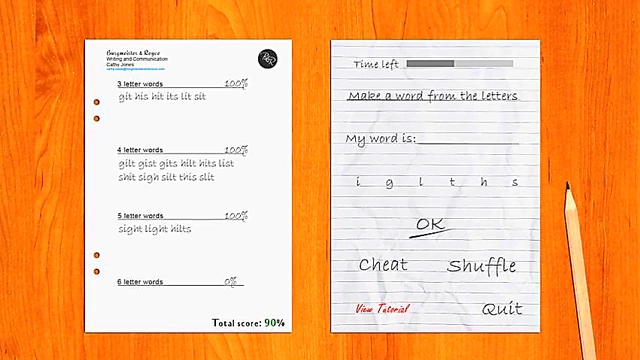 Burgmeister & Royce
Writing and Communication
Cathy Jones
3 letter words 100%
git his hit its lit sit
4 letter words 100%
gilt gist gits hilt hits list
shit sigh silt this slit
5 letter words 100%
sight light hilts
6 letter words 0%
Total score: 90%
Time left
Make a word from the letters
My word is:
i g l t h s
OK
Cheat Shuffle
View Tutorial Quit